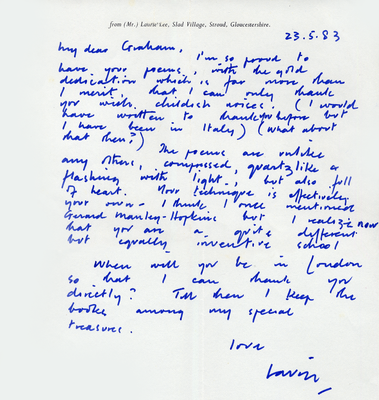 from (Mr.) Laurie Lee, Slad Village, Stroud, Gloucestershire.
23.5.83
My dear Graham,
I'm so proud to
have your poems, with the gold
dedication which is far more than
I merit, that I can only thank
you with childish noises. (I would
have written to thank you before but
I have been in Italy) (what about
that then?)
The poems are unlike
any others, compressed, quartz like &
flashing with light, but also full
of heart. Your technique is effectively
your own - I think I once mentioned
Gerard Manley-Hopkins but I realize now
that you are a quite different
but equally inventive school
When will you be in London
so that I can thank you
directly? Till then I keep the
books among my special
treasures.
love
Laurie